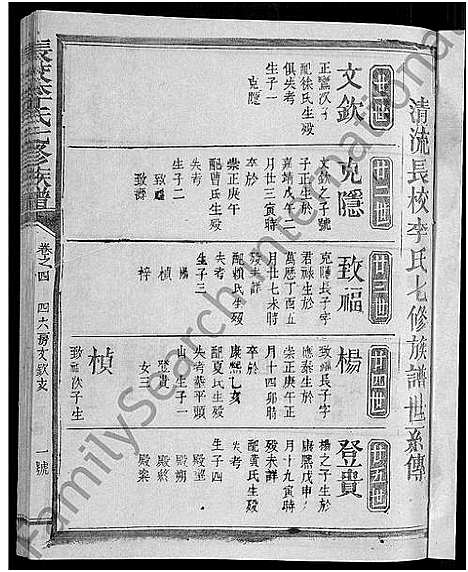 清流長校李氏七修族譜世系傳
廿一世
文欽
正鸞次子
配徐氏生殁
俱失考
生子一
克隱
廿二世
克隱
文欽之子號
子正生於
嘉靖戊午二
月廿三寅時
卒於
崇正庚午
配曹氏生殁
失考
生子二
致福
致壽
廿三世
致福
克隱長子字
君禄生於
萬歷丁酉五
月廿七未時
殁未詳
配賴氏生殁
失考
生子三
楊
楨
梓
廿四世
楊
致福長子字
應泰生於
崇正庚午正
月十四卯時
卒於
康熙乙亥
配夏氏生殁
失考葬平頭
山生子一
登貴
女三
楨
致福次子生
廿五世
登貴
楊之子生於
康熙戊申
月十九寅時
殁未詳
配黄氏生殁
失考
生子四
殿聖
殿朔
殿將
殿棻
長校李氏七修族譜
卷之四
四六房文欽支
一號
FamilySearch International